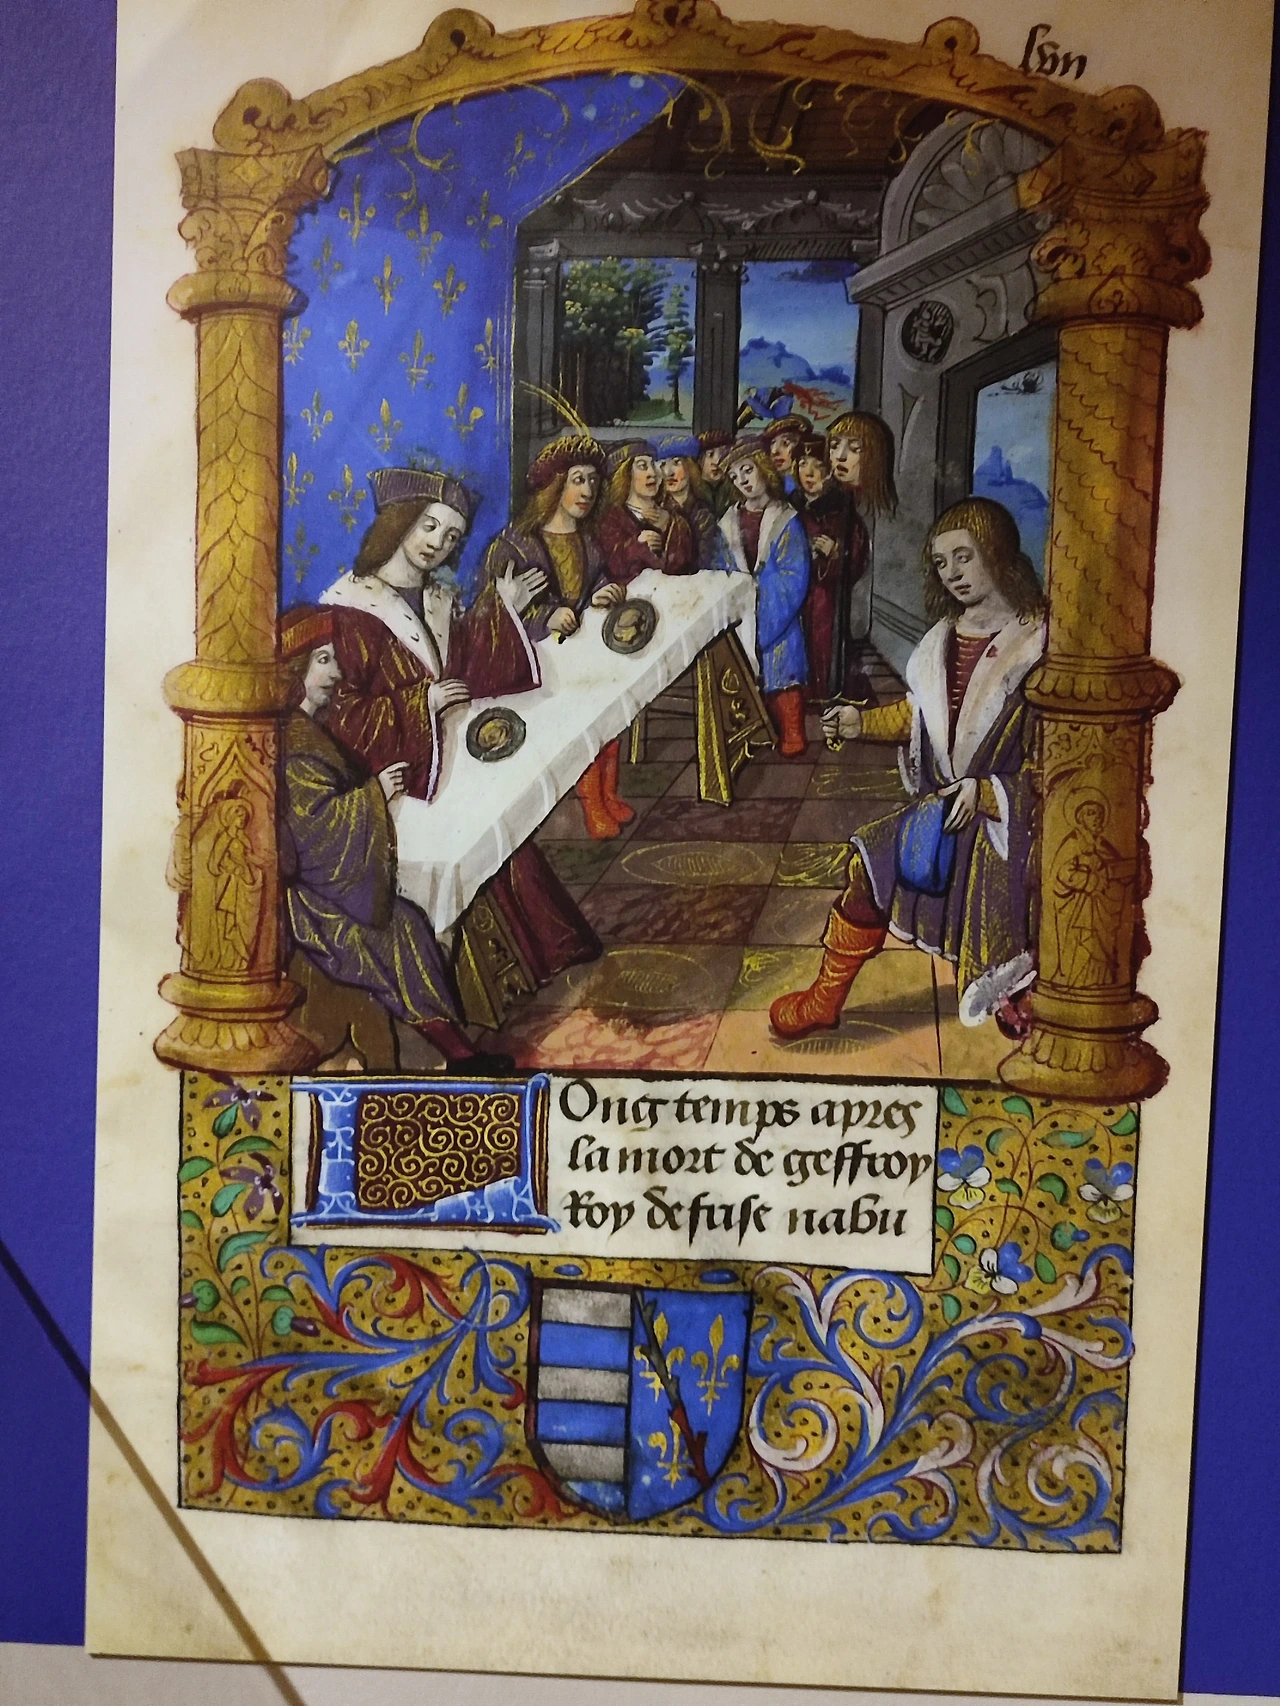 lvii
LOng temps apres
la mort de geffroy
Roy de frise nabu